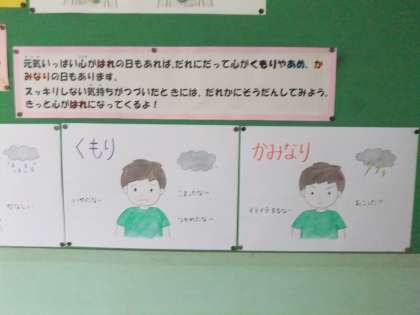 元気いっぱい心がはれの日もあれば、だれにだって心がくもりやあめ、か
みなりの日もあります。
スッキリしない気持ちがつづいたときには、だれかにそうだんしてみよう。
きっと心がはれになってくるよ！
かなしい
くもり
いやだな～
こまったな～
つかれたな～
かみなり
イライラするな～
おこった！！